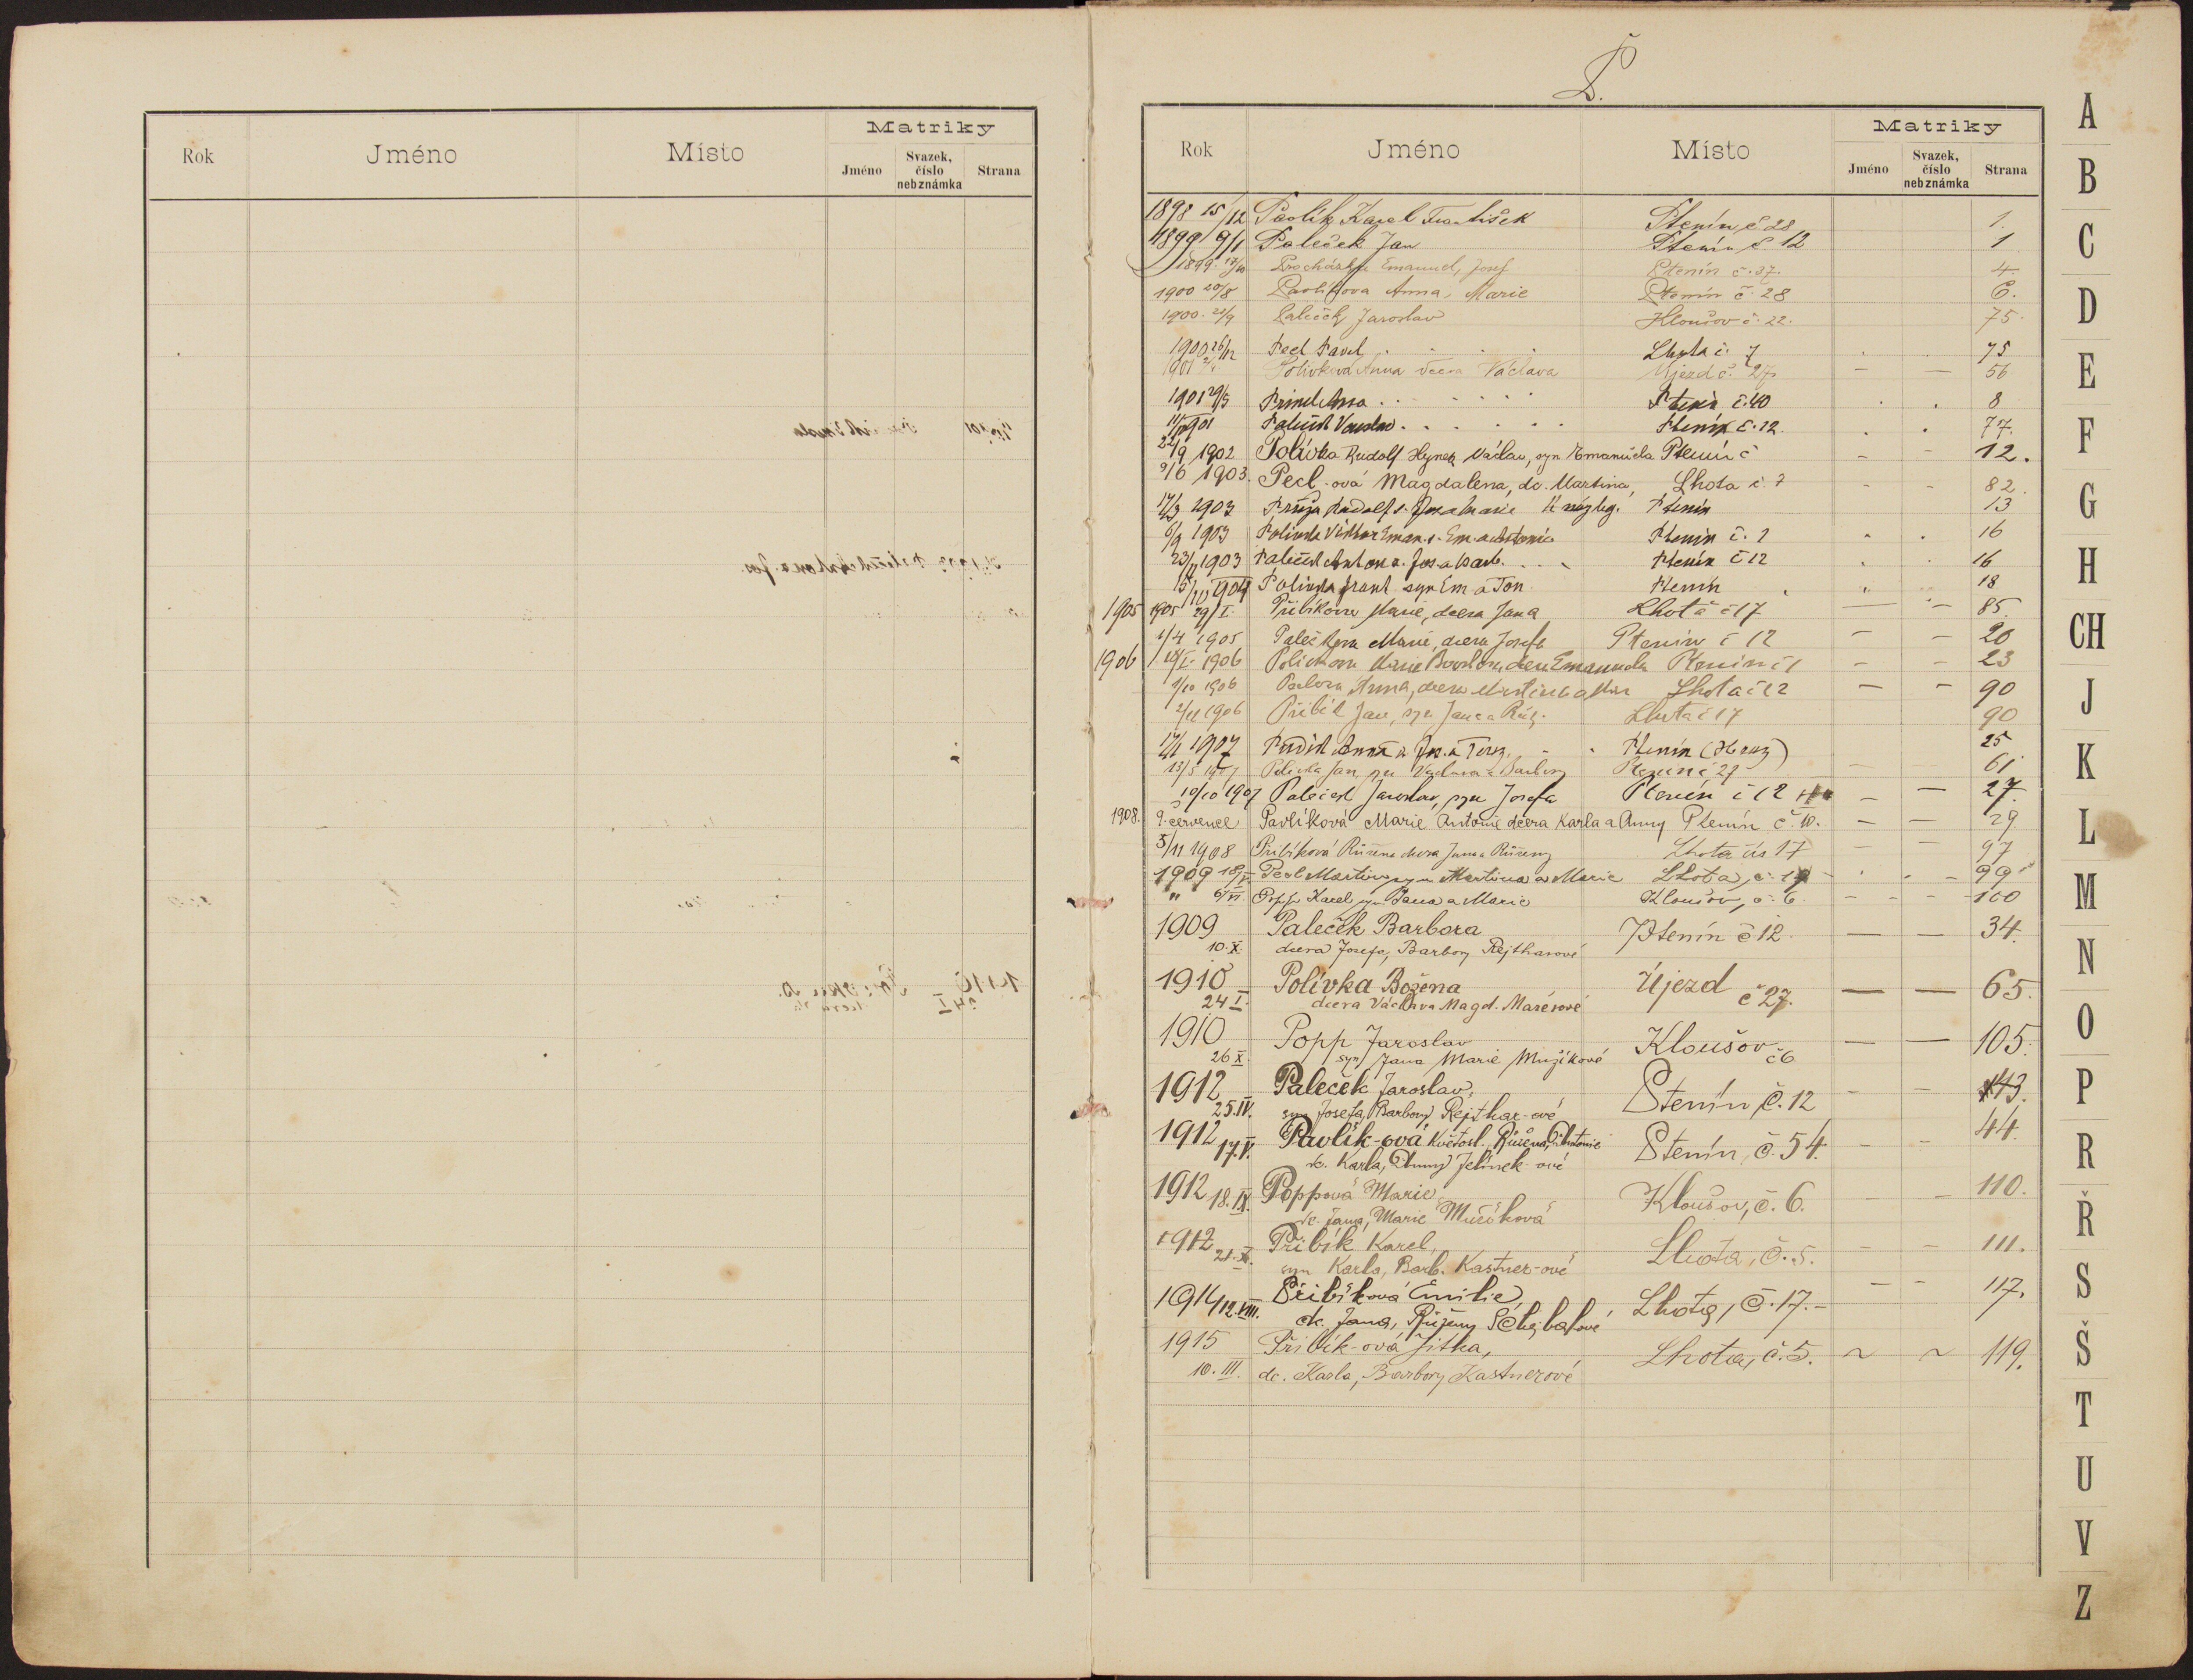 Rok Jméno Místo Matriky
Jméno Svazek, číslo neb známka Strana
P.
Rok Jméno Místo Matriky
Jméno Svazek, číslo neb známka Strana
1898 15/12 Pavlík Karel František Ptenín č 28 1.
1899 9/1 Paleček Jan Ptenín č 12 1
1899 17/10 Procházka Emanuel, Josef Ptenín č. 37. 4
1900 20/8 Pavlíkova Anna, Marie Ptenín č. 28 6.
1900. Paleček Jaroslav Kloušov č. 22. 75.
1900 26/12 Pecl Pavel Lhota č. 7 75
1901 Polívková Anna dcera Václava Újezd č. 27 - - 56
1901 29/5 Anna Ptenín č. 40 8
1901 Paleček Ptenín č. 12. 77.
22/9 1902 Polívka Rudolf Hynek Václav, syn Emanuela Ptenín č - - 12.
9/6 1903. Pecl-ová Magdalena, dc. Martina, Lhota č. 7 - - 82.
17/3 1903 Průja Rudolf Ptenín 13
6/9 1903 Polívka Viktor Eman. s. Em. a Antonie Ptenín č. 1 16
23/11 1903 Paleček Jos. a Barb. Ptenín č 12 16
15/10 1904 Polívka syn Em a Ton Ptenín 18
1905 1905 29/I. Přibíkova Marie, dcera Jana Lhota č 17 — - 85.
1/4 1905 Palečkova Marie, dcera Josefa Ptenín č 12 - - 20
1906 1906 Polívkova Marie dcera Emanuela Ptenín č 1 - - 23
1/10 1906 Peclova Anna, dcera Martina a Lhota č 12 - - 90
2/11 1906 Přibík Jan, syn Jana a Růž. Lhota č 17 90
17/1 1907 Anna Ptenín 25
13/5 1907 Polívka Jan, syn Václava a Barbory Ptenín č 27 - 61
10/10 1907 Paleček Jaroslav, syn Josefa Ptenín č 12 - - 27.
1908. 9. červenec Pavlíková Marie Antonie dcera Karla a Anny Ptenín č. 10. - - 29.
5/11 1908 Přibíková Růžena dcera Jana a Růženy Lhota čís 17 - - 97
1909 Pecl Martin syn Martina a Marie Lhota, č. - 99
" 6/VI. Popp Karel syn Jana a Marie Kloušov, č. 6. - - - 100
1909 Paleček Barbora Ptenín č 12. — — 34.
10. X. dcera Josefa, Barbory Rejtharové
1910 Polívka Božena Újezd č 27. — — 65.
24 I. dcera Václava Magd. Marešové
1910 Popp Jaroslav Kloušov č 6 — — 105.
26 X. syn Jana Marie Mužíkové
1912 Paleček Jaroslav, Ptenín, č. 12 - - 43.
25. IV. syn Josefa, Barbory Rejthar-ové
1912 Pavlík-ová Květosl. Růžena, Antonie Ptenín, č. 54. - - 44.
17. V. dc. Karla, Anny Jelínek-ové
1912 18. IX. Poppová Marie, Kloušov, č. 6. - - 110.
dc. Jana, Marie Mužíková
1912 21. X. Přibík Karel, Lhota, č. 5. - - 111.
syn Karla, Barb. Kastner-ové
1914 12. VIII. Přibíková Emilie, Lhota, č. 17. - - - 117.
dc. Jana, Růženy Schejbalové
1915 Přibík-ová Jitka, Lhota, č. 5. ~ ~ 119.
10. III. dc. Karla, Barbory Kastnerové
A
B
C
D
E
F
G
H
CH
J
K
L
M
N
O
P
R
Ř
S
Š
T
U
V
Z